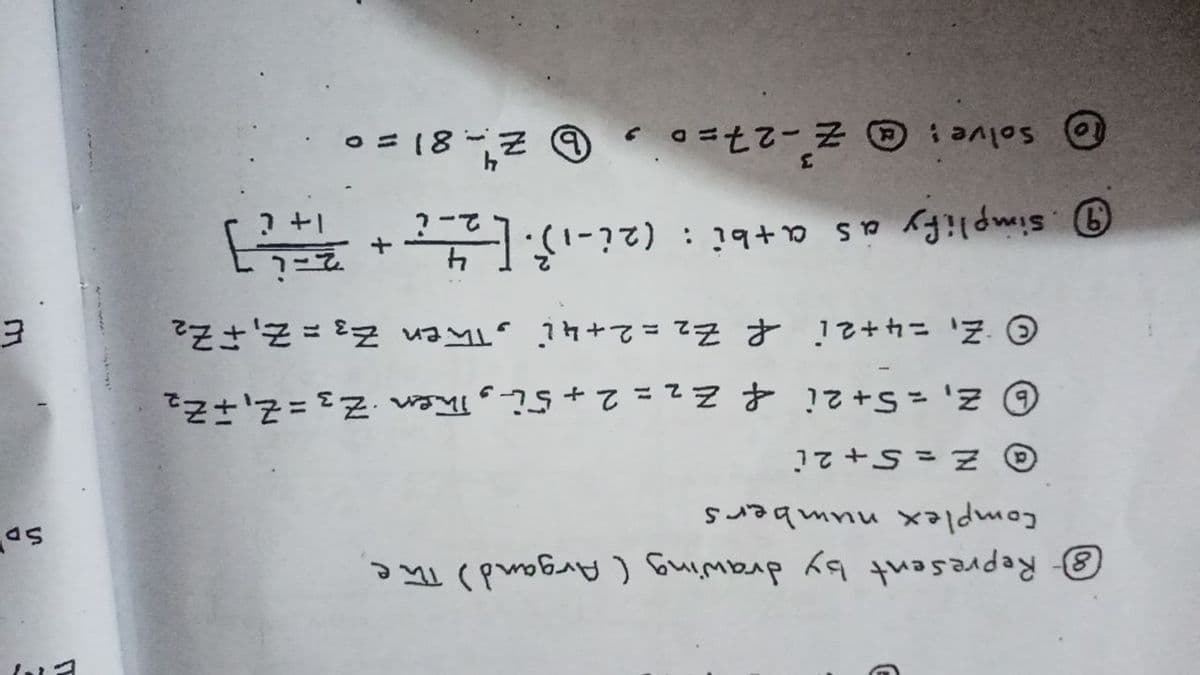 ⑧- Represent by drawing (Argand) The
Complex numbers
ⓐ Z = 5 + 2i
ⓑ Z₁ = 5+2i & Z₂ = 2 + 5i, Then Z₃ = Z₁ ∓ Z₂
ⓒ Z₁ = 4+2i & Z₂ = 2+4i, Then Z₃ = Z₁ ∓ Z₂
⑨ simplify as a+bi : (2i-1)². [4/(2-i) + (2-i)/(1+i)]
⑩ solve : ⓐ Z³-27=0 , ⓑ Z⁴-81 = 0